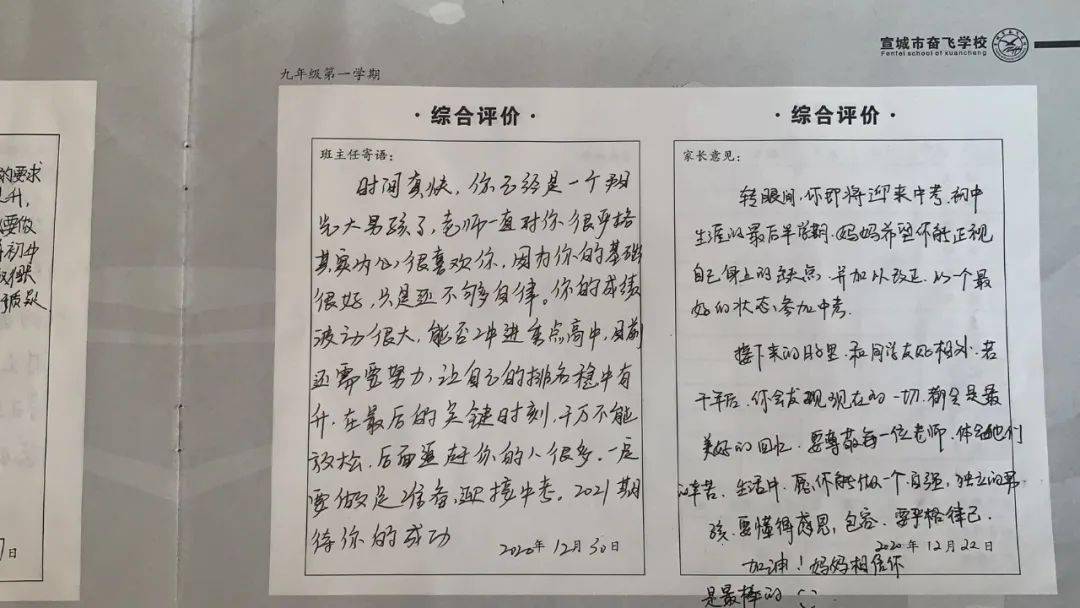 宣城市奋飞学校
Fenfei school of xuancheng
九年级第一学期
的要求
升,
要做
初中
·综合评价·
班主任寄语:
时间真快,你已经是一个阳
光大男孩了,老师一直对你很严格
其实内心很喜欢你,因为你的基础
很好,只是还不够自律。你的成绩
波动很大,能否冲进重点高中,目前
还需要努力,让自己的排名稳中有
升,在最后的关键时刻,千万不能
放松,后面追赶你的人很多。一定
要做足准备,迎接中考。2021期
待你的成功
2020年12月30日
·综合评价·
家长意见:
转眼间,你即将迎来中考.初中
生涯的最后半学期.妈妈希望你能正视
自己身上的缺点,并加以改正.以一个最
好的状态,参加中考.
接下来的日子里.和同学友好相处.若
干年后.你会发现现在的一切.都会是最
美好的回忆.要尊敬每一位老师.体会他们
的辛苦.生活中.愿你能做一个自强,独立的男
孩.要懂得感恩,包容.要严格律己.
2020年12月22日
加油!妈妈相信你
是最棒的
日